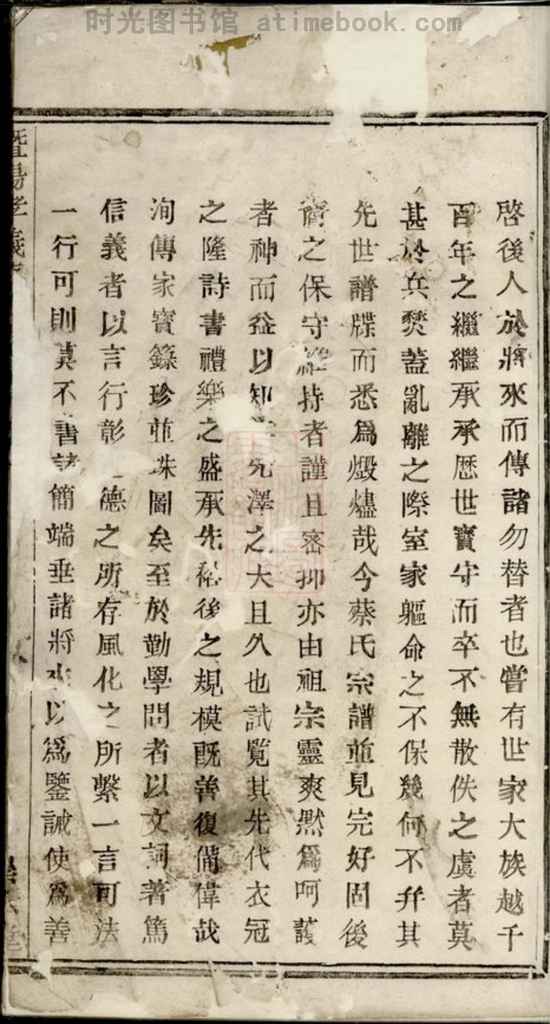 时光图书馆 atimebook.com
啓後人於將來而傳諸勿替者也嘗有世家大族越千
百年之繼繼承承歷世寶守而卒不無散佚之虞者莫
甚於兵燹蓋亂離之際室家軀命之不保幾何不弁其
先世譜牒而悉爲煅燼哉今蔡氏宗譜並見完好固後
裔之保守維持者謹且密抑亦由祖宗靈爽默爲呵護
者神而益以知先澤之大且久也試覧其先代衣冠
之隆詩書禮樂之盛承先裕後之規模旣善復備偉哉
洵傳家寶籙珍並珠圖矣至於勤學問者以文詞著篤
信義者以言行彰德之所存風化之所繫一言可法
一行可則莫不書諸簡端垂諸將來以爲鑒誡使爲善
暨陽孝義